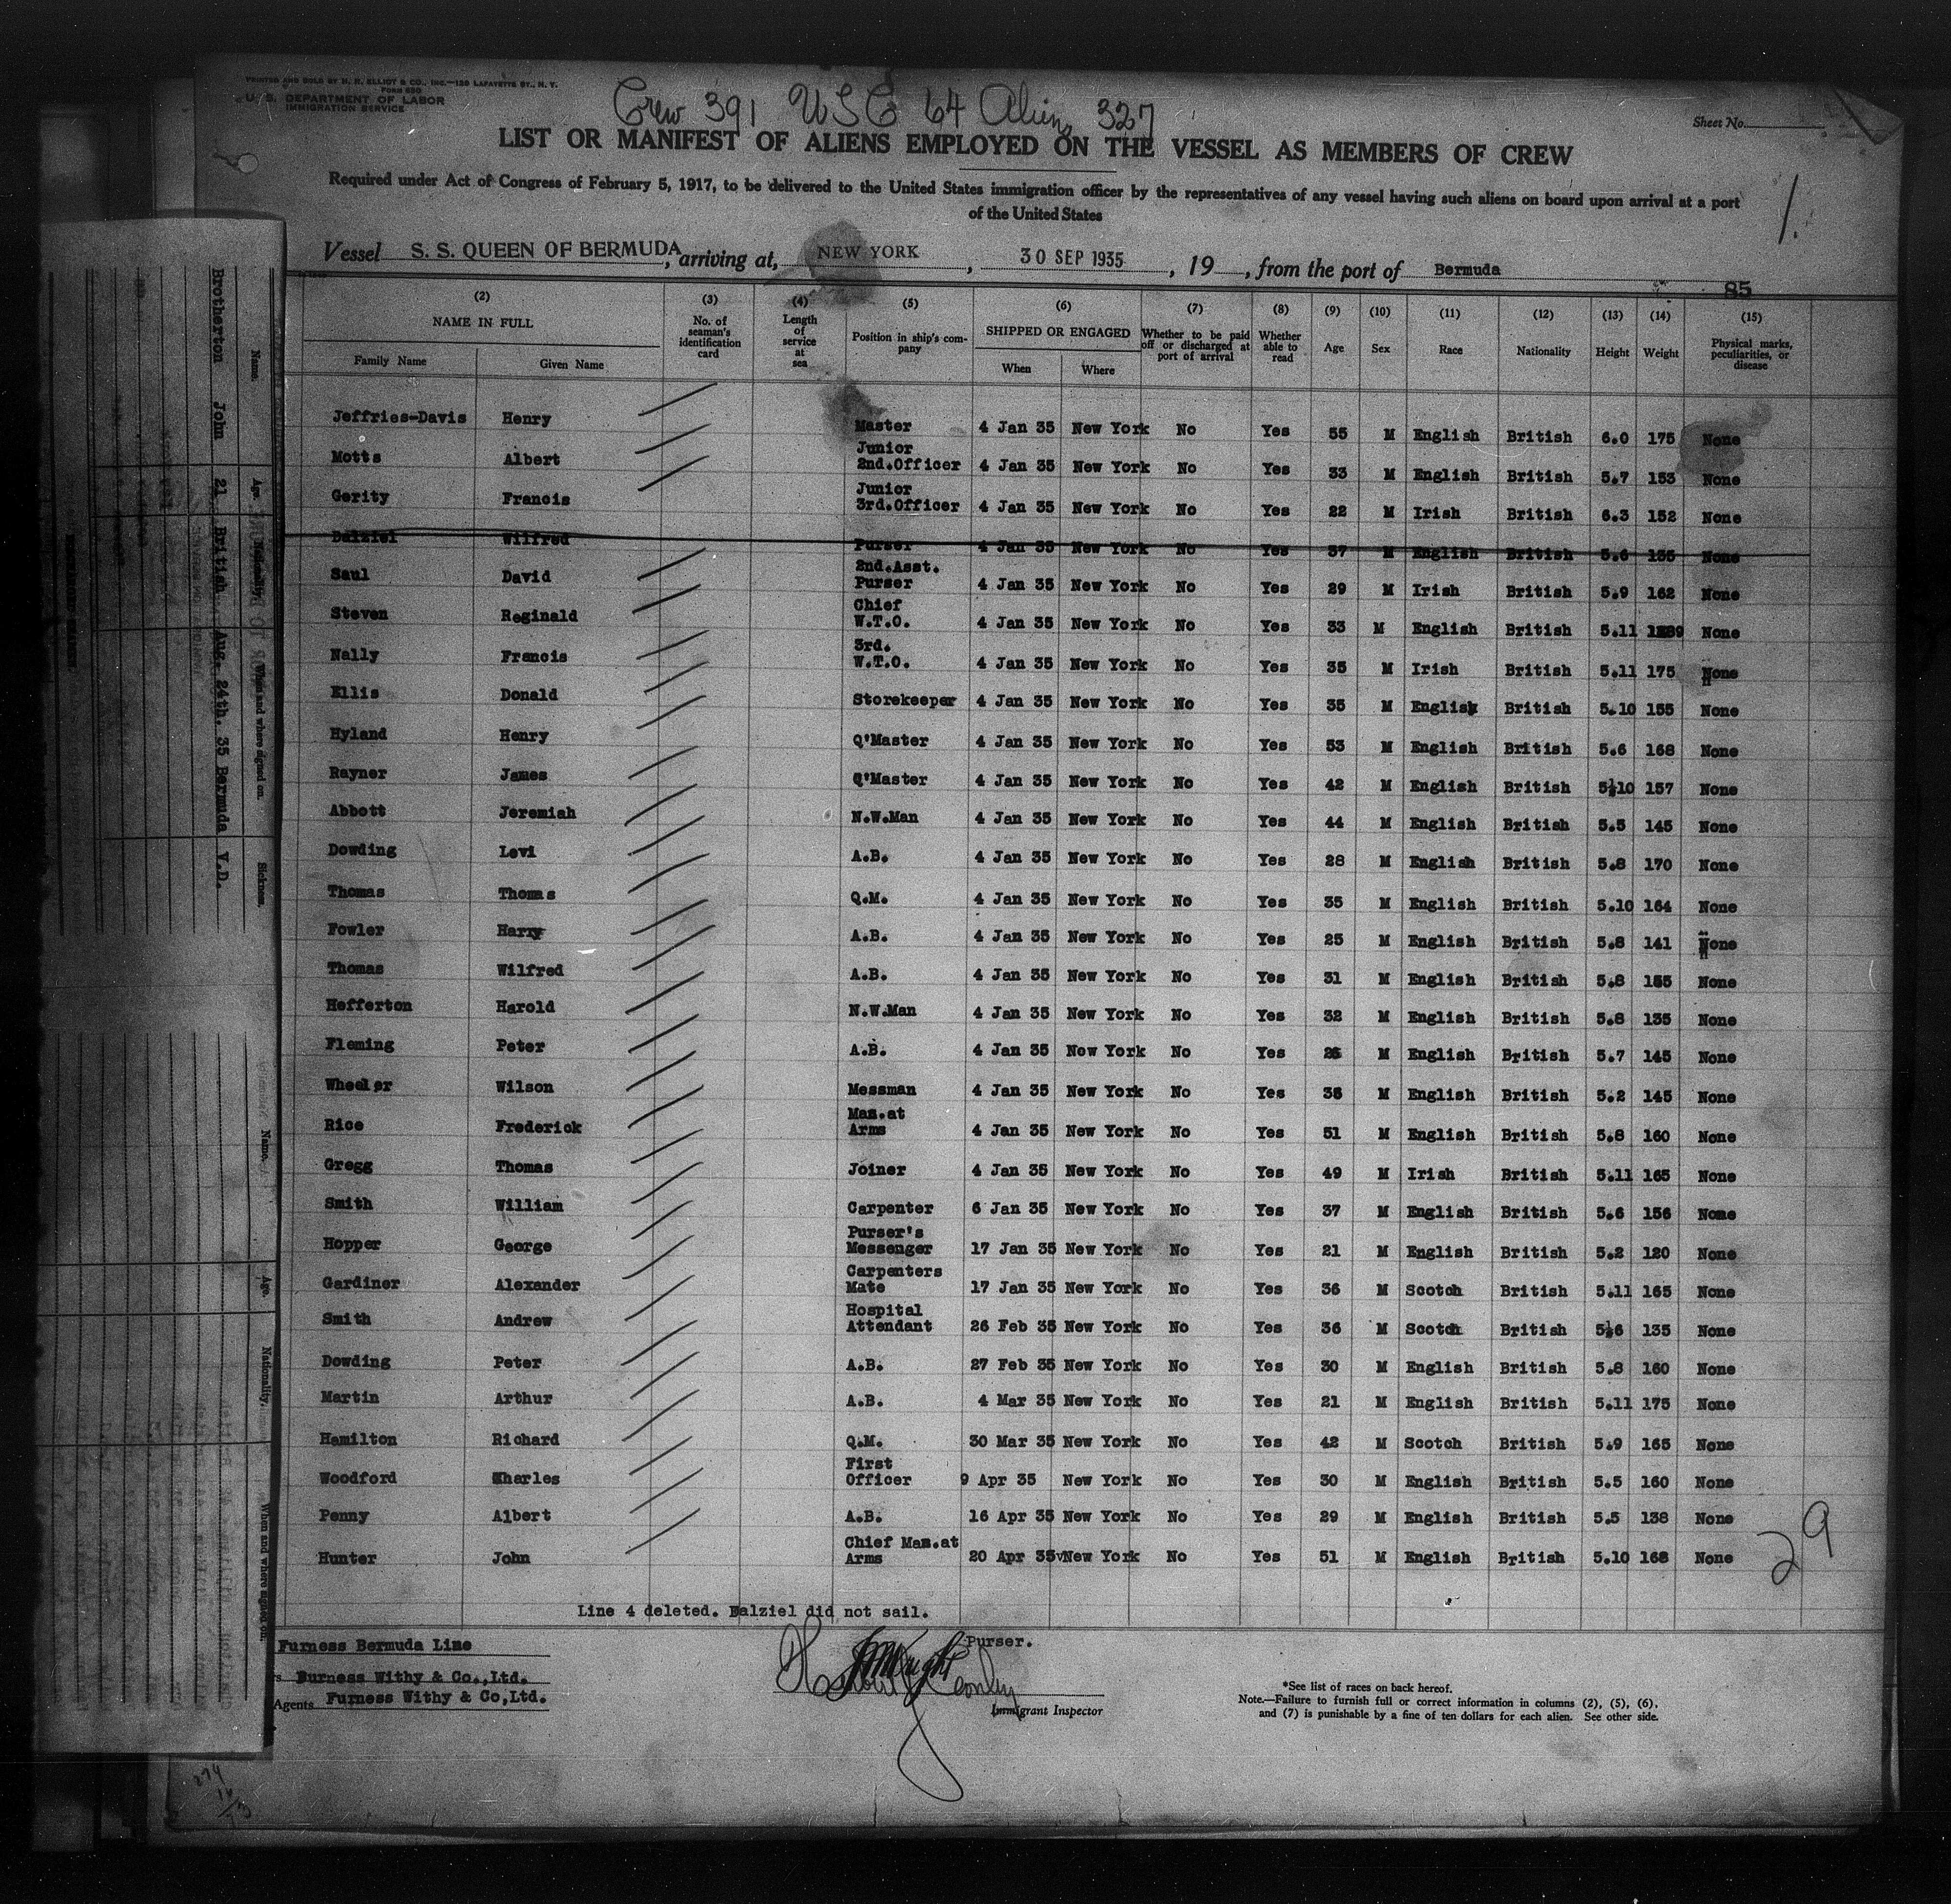 PRINTED AND SOLD BY H. H. ELLIOT & CO., INC.—139 LAFAYETTE ST., N. Y.
FORM 680
U. S. DEPARTMENT OF LABOR
IMMIGRATION SERVICE
Crew 391 USC 64 Aliens 327
Sheet No.
LIST OR MANIFEST OF ALIENS EMPLOYED ON THE VESSEL AS MEMBERS OF CREW
Required under Act of Congress of February 5, 1917, to be delivered to the United States immigration officer by the representatives of any vessel having such aliens on board upon arrival at a port
of the United States
1.
Vessel S. S. QUEEN OF BERMUDA, arriving at, NEW YORK, 30 SEP 1935, 19 , from the port of Bermuda
85
(2) NAME IN FULL Family Name Given Name (3) No. of seaman's identification card (4) Length of service at sea (5) Position in ship's company (6) SHIPPED OR ENGAGED When Where (7) Whether to be paid off or discharged at port of arrival (8) Whether able to read (9) Age (10) Sex (11) Race (12) Nationality (13) Height (14) Weight (15) Physical marks, peculiarities, or disease
Jeffries-Davis Henry Master 4 Jan 35 New York No Yes 55 M English British 6.0 175 None
Motts Albert Junior 2nd.Officer 4 Jan 35 New York No Yes 33 M English British 5.7 153 None
Gerity Francis Junior 3rd.Officer 4 Jan 35 New York No Yes 22 M Irish British 6.3 152 None
Dalziel Wilfred Purser 4 Jan 35 New York No Yes 37 M English British 5.6 135 None
Saul David 2nd.Asst. Purser 4 Jan 35 New York No Yes 29 M Irish British 5.9 162 None
Steven Reginald Chief W.T.O. 4 Jan 35 New York No Yes 33 M English British 5.11 None
Nally Francis 3rd. W.T.O. 4 Jan 35 New York No Yes 35 M Irish British 5.11 175 None
Ellis Donald Storekeeper 4 Jan 35 New York No Yes 35 M English British 5.10 155 None
Hyland Henry Q'Master 4 Jan 35 New York No Yes 53 M English British 5.6 168 None
Rayner James Q'Master 4 Jan 35 New York No Yes 42 M English British 5.10 157 None
Abbott Jeremiah N.W.Man 4 Jan 35 New York No Yes 44 M English British 5.5 145 None
Dowding Levi A.B. 4 Jan 35 New York No Yes 28 M English British 5.8 170 None
Thomas Thomas Q.M. 4 Jan 35 New York No Yes 35 M English British 5.10 164 None
Fowler Harry A.B. 4 Jan 35 New York No Yes 25 M English British 5.8 141 None
Thomas Wilfred A.B. 4 Jan 35 New York No Yes 31 M English British 5.8 155 None
Hefferton Harold N.W.Man 4 Jan 35 New York No Yes 32 M English British 5.8 135 None
Fleming Peter A.B. 4 Jan 35 New York No Yes M English British 5.7 145 None
Wheeler Wilson Messman 4 Jan 35 New York No Yes M English British 5.2 145 None
Rice Frederick Mas.at Arms 4 Jan 35 New York No Yes 51 M English British 5.8 160 None
Gregg Thomas Joiner 4 Jan 35 New York No Yes 49 M Irish British 5.11 165 None
Smith William Carpenter 6 Jan 35 New York No Yes 37 M English British 5.6 156 None
Hopper George Purser's Messenger 17 Jan 35 New York No Yes 21 M English British 5.2 120 None
Gardiner Alexander Carpenters Mate 17 Jan 35 New York No Yes 36 M Scotch British 5.11 165 None
Smith Andrew Hospital Attendant 26 Feb 35 New York No Yes 36 M Scotch British 5.6 135 None
Dowding Peter A.B. 27 Feb 35 New York No Yes 30 M English British 5.8 160 None
Martin Arthur A.B. 4 Mar 35 New York No Yes 21 M English British 5.11 175 None
Hamilton Richard Q.M. 30 Mar 35 New York No Yes 42 M Scotch British 5.9 165 None
Woodford Charles First Officer 9 Apr 35 New York No Yes 30 M English British 5.5 160 None
Penny Albert A.B. 16 Apr 35 New York No Yes 29 M English British 5.5 138 None
Hunter John Chief Mas.at Arms 20 Apr 35 New York No Yes 51 M English British 5.10 168 None
29
Line 4 deleted. Dalziel did not sail.
Purser.
Immigrant Inspector
Furness Bermuda Line
Furness Withy & Co.,Ltd.
Agents Furness Withy & Co,Ltd.
*See list of races on back hereof.
Note.—Failure to furnish full or correct information in columns (2), (5), (6),
and (7) is punishable by a fine of ten dollars for each alien. See other side.
Name. Age. Nationality. When and where signed on. Sickness.
Brotherton John 21 British Aug. 24th. 35 Bermuda V.D.
Name. Age. Nationality. When and where signed on.